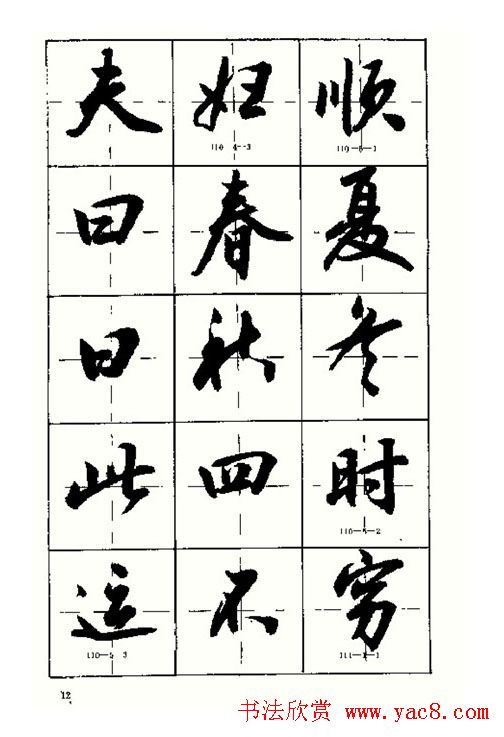 夫妇顺
110 4-3 110-5-1
曰春夏
曰秋冬
此四时
110-5-2
运不穷
110-5 3 111-1-1
12
书法欣赏 www.yac8.com